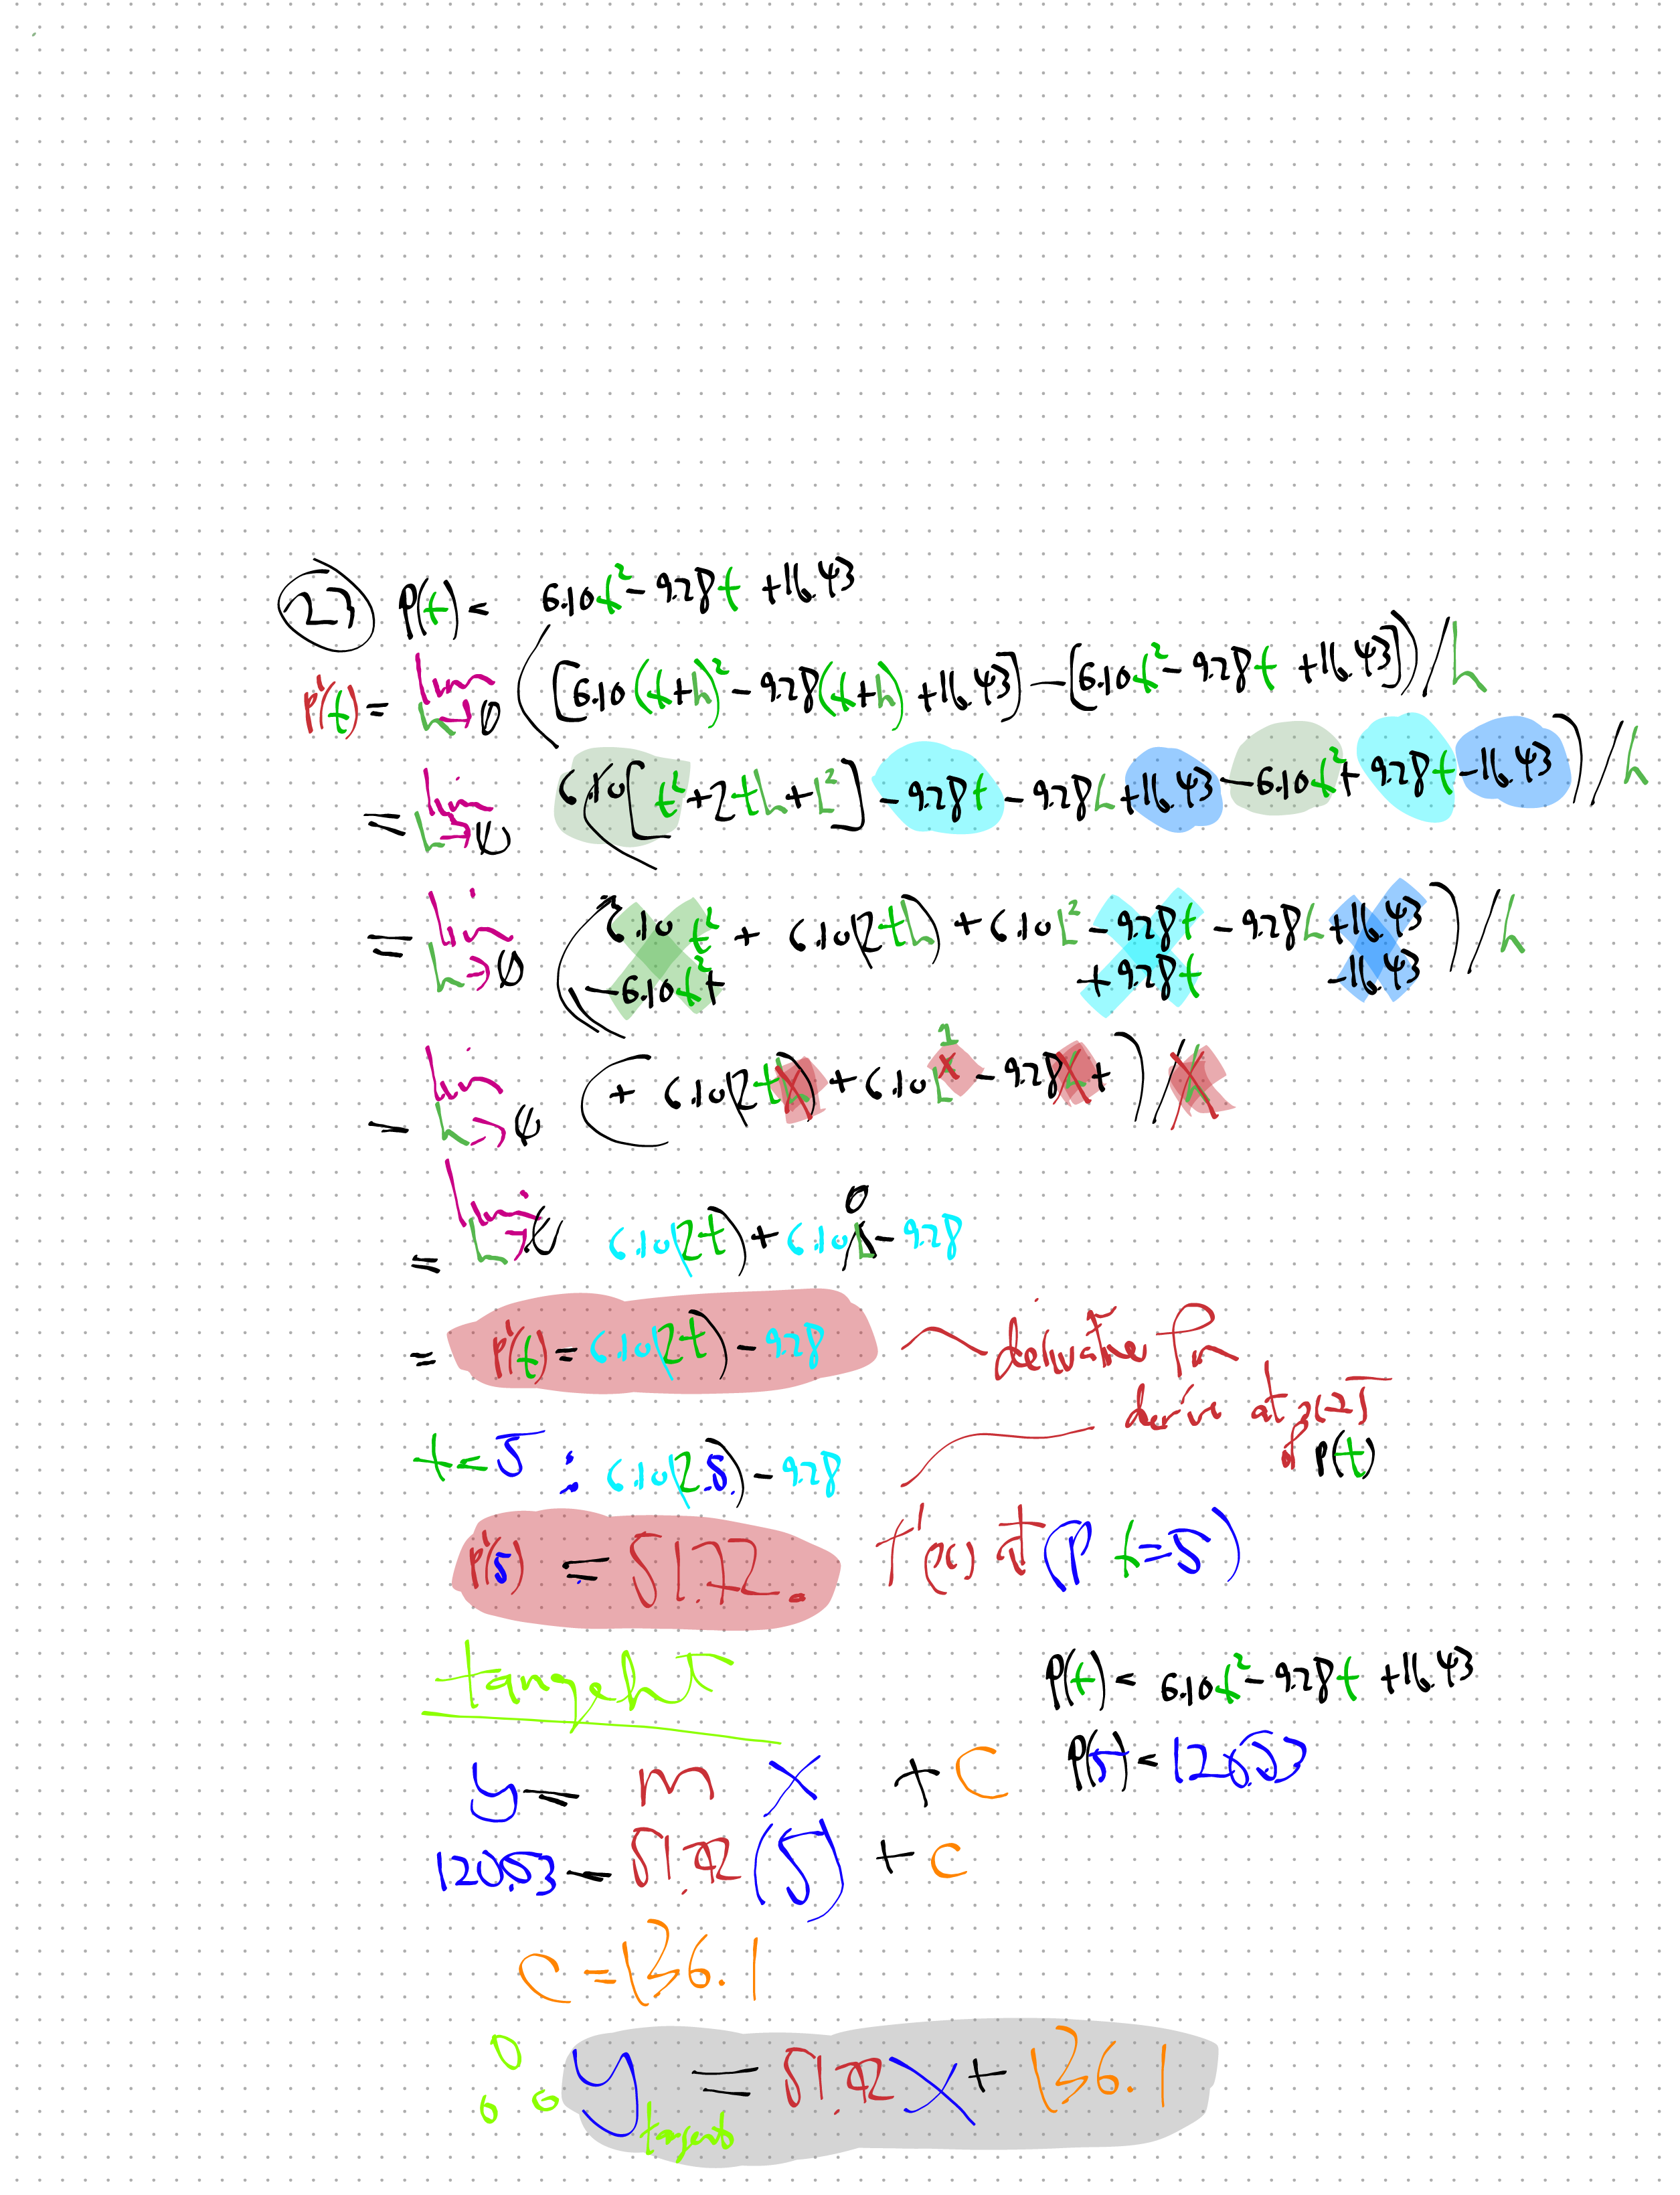 23 P(t) = 6.10t² - 9.28t + 16.43
P'(t) = lim h→0 ([6.10(t+h)² - 9.28(t+h) + 16.43] - [6.10t² - 9.28t + 16.43])/h
= lim h→0 (6.10[t² + 2th + h²] - 9.28t - 9.28h + 16.43 - 6.10t² + 9.28t - 16.43)/h
= lim h→0 (6.10 t² + 6.10(2th) + 6.10h² - 9.28t - 9.28h + 16.43)/h
- 6.10t² + + 9.28t - 16.43
= lim h→0 (+ 6.10(2th) + 6.10h 1 - 9.28h +)/h
= lim h→0 6.10(2t) + 6.10h 0 - 9.28
= P'(t) = 6.10(2t) - 9.28 derivative fn
t = 5 : 6.10(2.5) - 9.28 deriv at x=5 of P(t)
P'(5) = 51.72. f'(x) at (P t=5)
tangent
P(t) = 6.10t² - 9.28t + 16.43
P(5) = 120.53
y = m x + c
120.53 = 51.72 (5) + c
c = 136.1
y tangent = 51.72x + 136.1